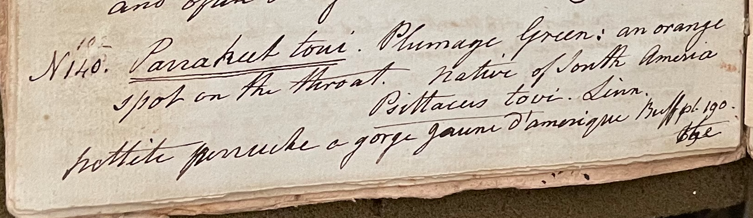 and
10
N 140. Parrakeet tovi. Plumage Green: an orange
spot on the throat. Native of South America
Psittacus tovi. Linn.
pettite perruche a gorge jaune d'amerique Buff pl. 190.
The